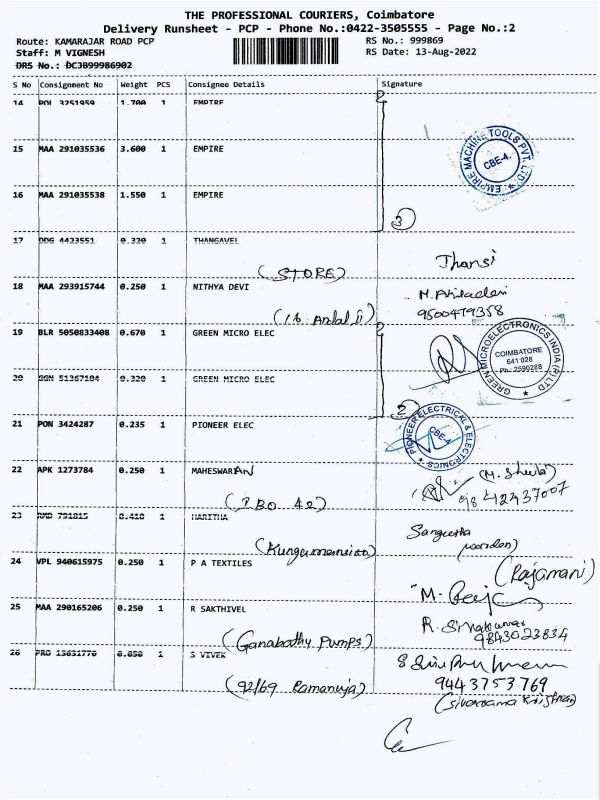 THE PROFESSIONAL COURIERS, Coimbatore
Delivery Runsheet - PCP - Phone No.:0422-3505555 - Page No.:2
Route: KAMARAJAR ROAD PCP RS No.: 999869
Staff: M VIGNESH RS Date: 13-Aug-2022
DRS No.: DCJB99986902
S No Consignment No Weight PCS Consignee Details Signature
14 POL 3251959 1.700 1 EMPIRE
15 MAA 291035536 3.600 1 EMPIRE
EMPIRE MACHINE TOOLS PVT. LTD. CBE-4.
16 MAA 291035538 1.550 1 EMPIRE
3
17 DDG 4423551 0.320 1 THANGAVEL
(STORE) Jhansi
18 MAA 293915744 0.250 1 NITHYA DEVI
9500479358
19 BLR 5050833408 0.670 1 GREEN MICRO ELEC
GREEN MICROELECTRONICS INDIA (P) LTD COIMBATORE 641 028
20 GGN 51367104 0.320 1 GREEN MICRO ELEC
2
21 PON 3424287 0.235 1 PIONEER ELEC
PIONEER ELECTRICAL & ELECTRONICS CBE-4
22 APK 1273784 0.250 1 MAHESWARAN
(M. Sheela)
9842437007
23 1 HARITHA
Sangeetha
(warden)
24 VPL 940615975 0.250 1 P A TEXTILES
(Rajamani)
25 MAA 290165206 0.250 1 R SAKTHIVEL
(Ganabathy Pumps) 9843023834
26 PRG 13631770 0.850 1 S VIVEK
(92/69 Ramanuja) 9443753769